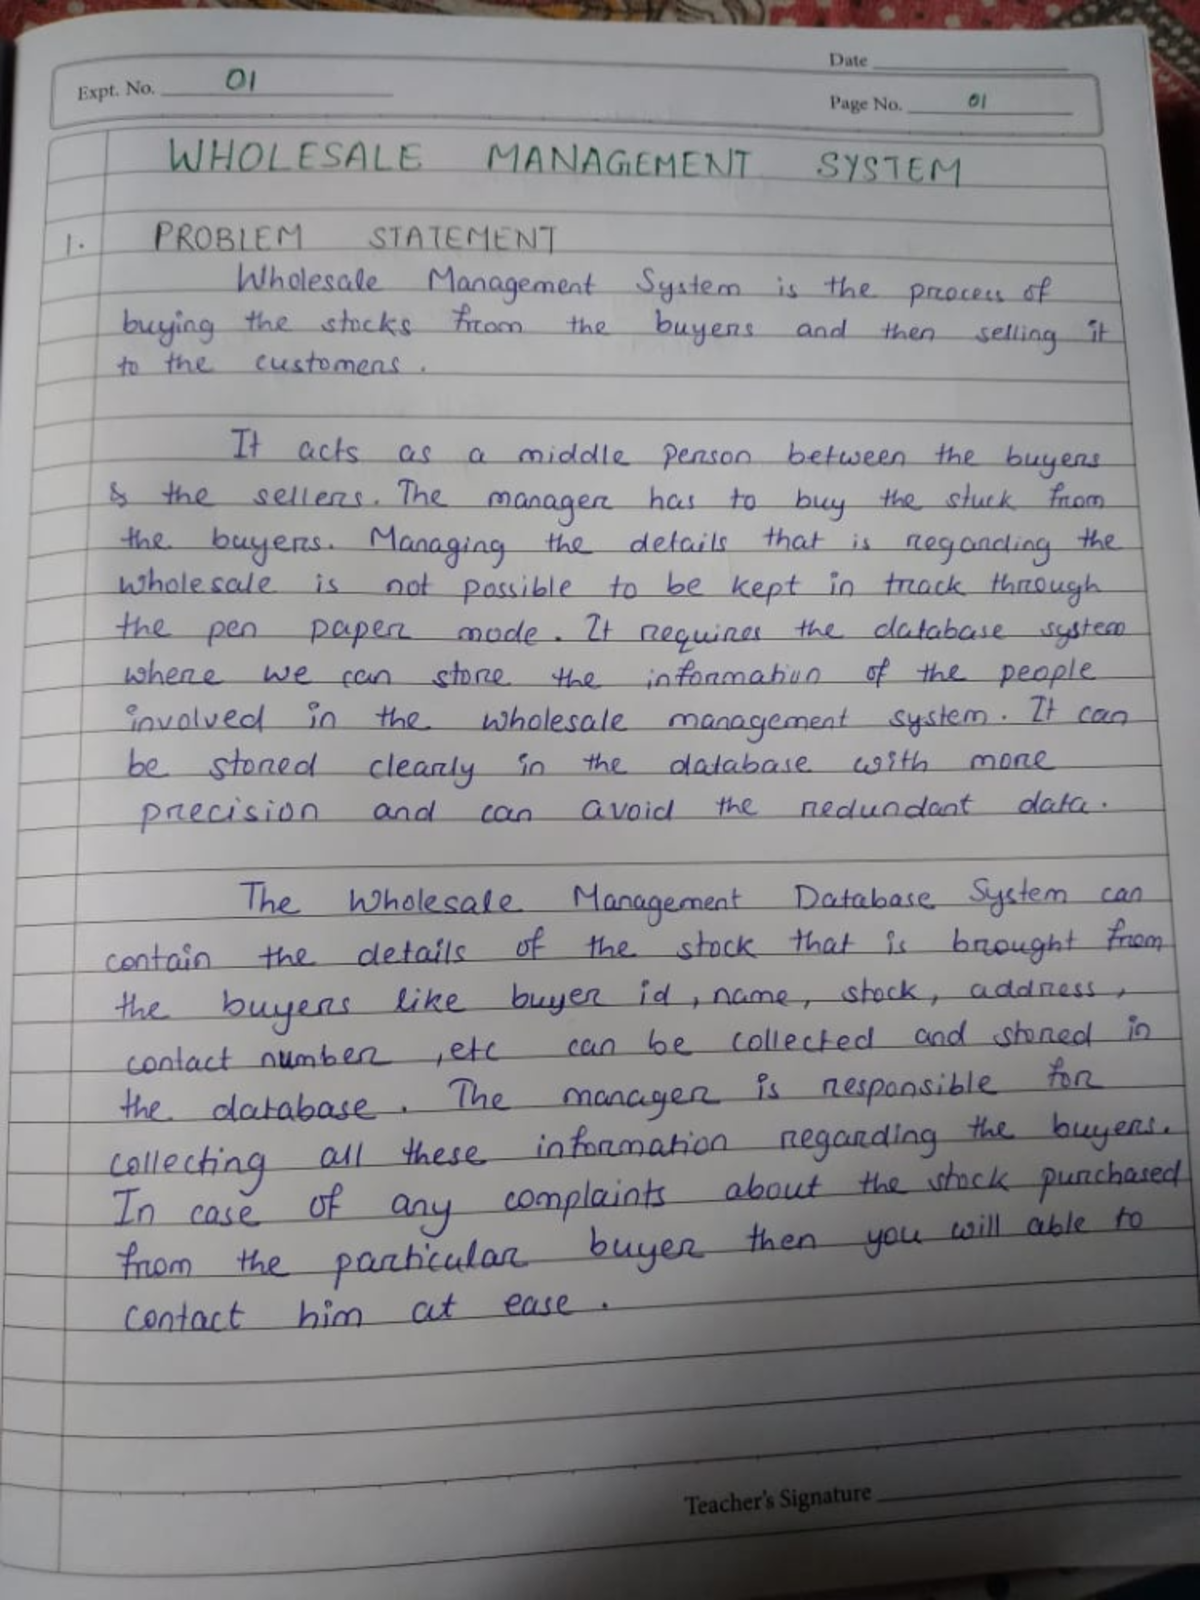 Date
Expt. No. 01
Page No. 01
WHOLESALE MANAGEMENT SYSTEM
1. PROBLEM STATEMENT
Wholesale Management System is the process of
buying the stocks from the buyers and then selling it
to the customers.
It acts as a middle person between the buyers
& the sellers. The manager has to buy the stuck from
the buyers. Managing the details that is regarding the
wholesale is not possible to be kept in track through
the pen paper mode. It requires the database system
where we can store the information of the people
involved in the wholesale management system. It can
be stored clearly in the database with more
precision and can avoid the redundant data.
The Wholesale Management Database System can
contain the details of the stock that is brought from
the buyers like buyer id, name, stock, address,
contact number, etc can be collected and stored in
the database. The manager is responsible for
collecting all these information regarding the buyers.
In case of any complaints about the stock purchased
from the particular buyer then you will able to
contact him at ease.
Teacher's Signature